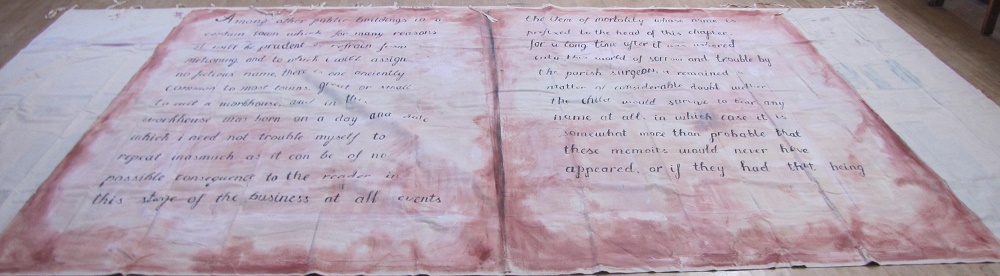 Among other public buildings in a
certain town which for many reasons
it will be prudent to refrain from
mentioning and to which i will assign
no fictious name, there is one anciently
common to most towns, great or small
to wit a workhouse, and in this
workhouse was born on a day and date
which i need not trouble myself to
repeat inasmuch as it can be of no
possible consequence to the reader in
this stage of the business at all events
the item of mortality whose name is
prefixed to the head of this chapter.
for a long time after it was ushered
into this world of sorrow and trouble by
the parish surgeon, it remained
matter of considerable doubt wether
the child would survive to bear any
name at all. in which case it is
somewhat more than probable that
these memoirs would never have
appeared. or if they had that being